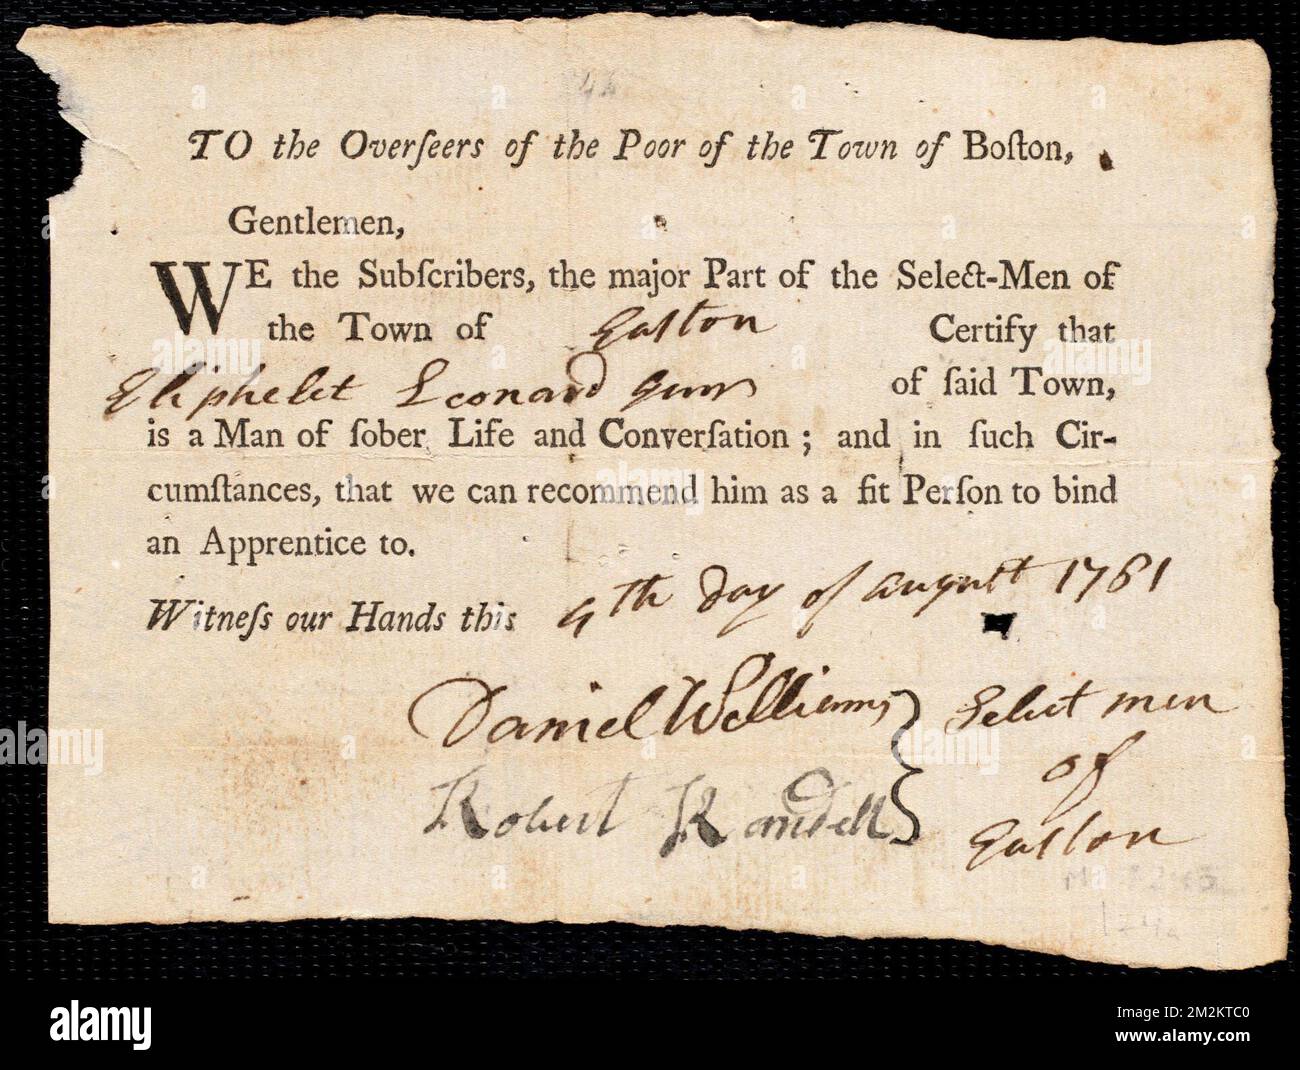 TO the Overſeers of the Poor of the Town of Boſton,
Gentlemen,
WE the Subſcribers, the major Part of the Select-Men of
the Town of Easton Certify that
Eliphelet Leonard Junr of ſaid Town,
is a Man of ſober Life and Converſation; and in ſuch Cir-
cumſtances, that we can recommend him as a fit Perſon to bind
an Apprentice to.
Witneſs our Hands this 4th day of augustt 1761
Daniel Williams } Select men
of
Robert Randell
Easton
alamy
Image ID: 2M2KTC0
www.alamy.com